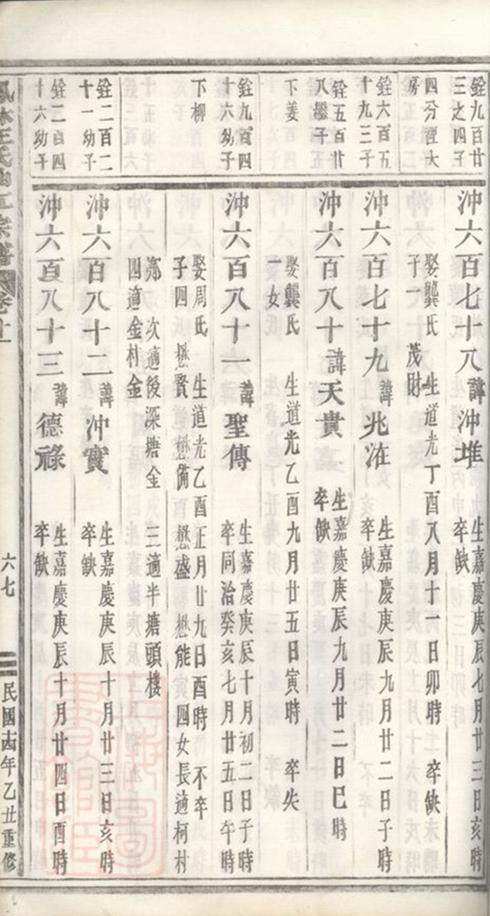 銓九百廿
三之四子
沖六百七十八諱沖堆
生嘉慶庚辰七月廿八日辰時
卒缺
四分恆大
房
娶龔氏 生道光丁酉八月十一日卯時 卒缺
子一 茂財
銓六百五
十九三子
沖六百七十九諱兆淮
生嘉慶庚辰九月廿二日子時
卒缺
銓五百廿
八繼子
沖六百八十諱天貴
生嘉慶庚辰九月廿二日巳時
卒缺
下姜
娶龔氏 生道光乙酉九月廿五日寅時 卒失
一女
銓九百四
十六幼子
沖六百八十一諱聖傳
生嘉慶庚辰十月初二日子時
卒同治癸亥七月廿五日午時
下柳
娶周氏 生道光乙酉正月廿九日酉時 不卒
子四 懋賓 懋備 懋盛 懋能 四女長適柯村
鄭 次適後深塘金 三適半塘頭樓
四適金村金
銓二百二
十一幼子
沖六百八十二諱沖實
生嘉慶庚辰十月廿三日亥時
卒缺
銓二百四
十六幼子
沖六百八十三諱德祿
生嘉慶庚辰十月廿四日酉時
卒缺
鳳林王氏宗譜 卷十
六七
民國十四年乙丑重修